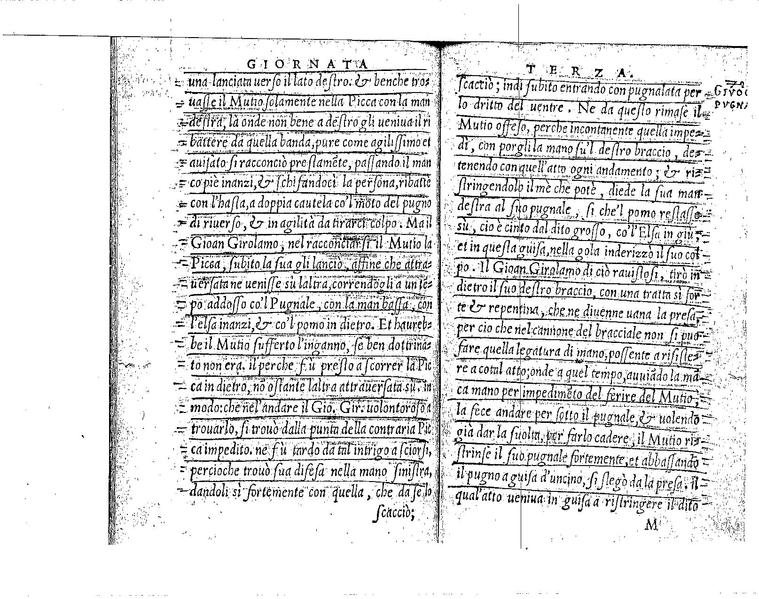 GIORNATA
una lanciata uerso il lato destro. & benche tro=
uasse il Mutio solamente nella Picca con la man
destra, là onde non bene a destro gli ueniua il ri
battere da quella banda, pure come agilissimo et
auisato si racconciò prestamēte, passando il man
co piè inanzi, & schifandoci la persona, ribattè
con l'hasta, a doppia cautela co'l moto del pugno
di riuerso, & in agilità da tirarci colpo. Ma il
Gioan Girolamo, nel racconciarsi il Mutio la
Picca, subito la sua gli lanciò, affine che attra=
uersatane uenisse su laltra, correndogli a un tē=
po addosso co'l Pugnale, con la man bassa, con
l'elsa inanzi, & co'l pomo in dietro. Et haureb=
be il Mutio sufferto l'inganno, se ben dottrina=
to non era. il perche fù presto a scorrer la Pic
ca in dietro, nō ostante laltra attrauersata su. in
modo: che nel'andare il Gio. Gir: uolontoroso a
trouarlo, si trouò dalla punta della contraria Pic
ca impedito. ne fù tardo da tal intrigo a sciorsi,
percioche trouò sua difesa nella mano sinistra,
dandoli sì fortemente con quella, che da se lo
scacciò;
TERZA.
scacciò; indi subito entrando con pugnalata per
lo dritto del uentre. Ne da questo rimase il
Mutio offeso, perche incontanente quella impe=
dì, con porgli la mano su'l destro braccio, de=
tenendo con quell'atto ogni andamento; & ri=
stringendolo il mè che potè, diede la sua man
destra al suo pugnale, si che'l pomo restasse
su, cio è cinto dal dito grosso, co'l'Elsa in giù;
et in questa guisa, nella gola inderizzò il suo col
po. Il Gioan Girolamo di ciò rauistosi, tirò in
dietro il suo destro braccio, con una tratta si for
te & repentina, che ne diuenne uana la presa,
per cio che nel cannone del bracciale non si puo
fare quella legatura di mano, possente a risiste=
re a cotal atto; onde a quel tempo, auuiādo la mā
ca mano per impedimēto del ferire del Mutio,
la fece andare per sotto il pugnale, & uolendo
già dar la suolta, per farlo cadere, il Mutio ri=
strinse il suo pugnale fortemente, et abbassando
il pugno a guisa d'uncino, si slegò da la presa. Il
qual'atto ueniua in guisa a ristringere il dito
M
GIVOC
PVGNA